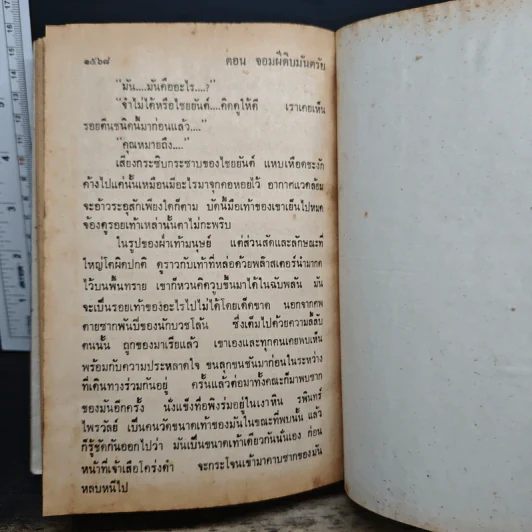 ๑๕๖๘ ตอน จอมผีดิบมันตรัย
“มัน....มันคืออะไร....?”
“จำไม่ได้หรือไชยยันต์....คิดดูให้ดี เราเคยเห็น
รอยตีนชนิดนี้มาก่อนแล้ว....”
“คุณหมายถึง....”
เสียงกระซิบกระซาบของไชยยันต์ แหบเหือดชะงัก
ค้างไปแค่นั้นเหมือนมีอะไรมาจุกคอหอยไว้ อากาศแวดล้อม
จะอ้าวระอุสักเพียงใดก็ตาม บัดนี้มือเท้าของเขาเย็นไปหมด
จ้องดูรอยเท้าเหล่านั้นตาไม่กะพริบ
ในรูปของฝ่าเท้ามนุษย์ แต่ส่วนสัดและลักษณะที่
ใหญ่โตผิดปกติ ดูราวกับเท้าที่หล่อด้วยพล๊าสเตอร์นำมากด
ไว้บนพื้นทราย เขาก็หวนคิดวูบขึ้นมาได้ในฉับพลัน มัน
จะเป็นรอยเท้าของอะไรไปไม่ได้โดยเด็ดขาด นอกจากศพ
ตายซากพันปีของนักบวชโล้น ซึ่งเต็มไปด้วยความลี้ลับ
คนนั้น ถูกของมาเรียแล้ว เขาเองและทุกคนเคยพบเห็น
พร้อมกับความประหลาดใจ ขนลุกขนชันมาก่อนในระหว่าง
ที่เดินทางร่วมกันอยู่ ครั้นแล้วต่อมาทั้งคณะก็มาพบซาก
ของมันอีกครั้ง นั่งแข็งทื่อพิงร่มอยู่ในเงาหิน รพินทร์
ไพรวัลย์ เป็นคนวัดขนาดเท้าของมันในขณะที่พบนั้น แล้ว
ก็รู้ชัดกันออกไปว่า มันเป็นขนาดเท้าเดียวกันนั่นเอง ก่อน
หน้าที่เจ้าเสือโคร่งดำ จะกระโจนเข้ามาคาบซากของมัน
หลบหนีไป